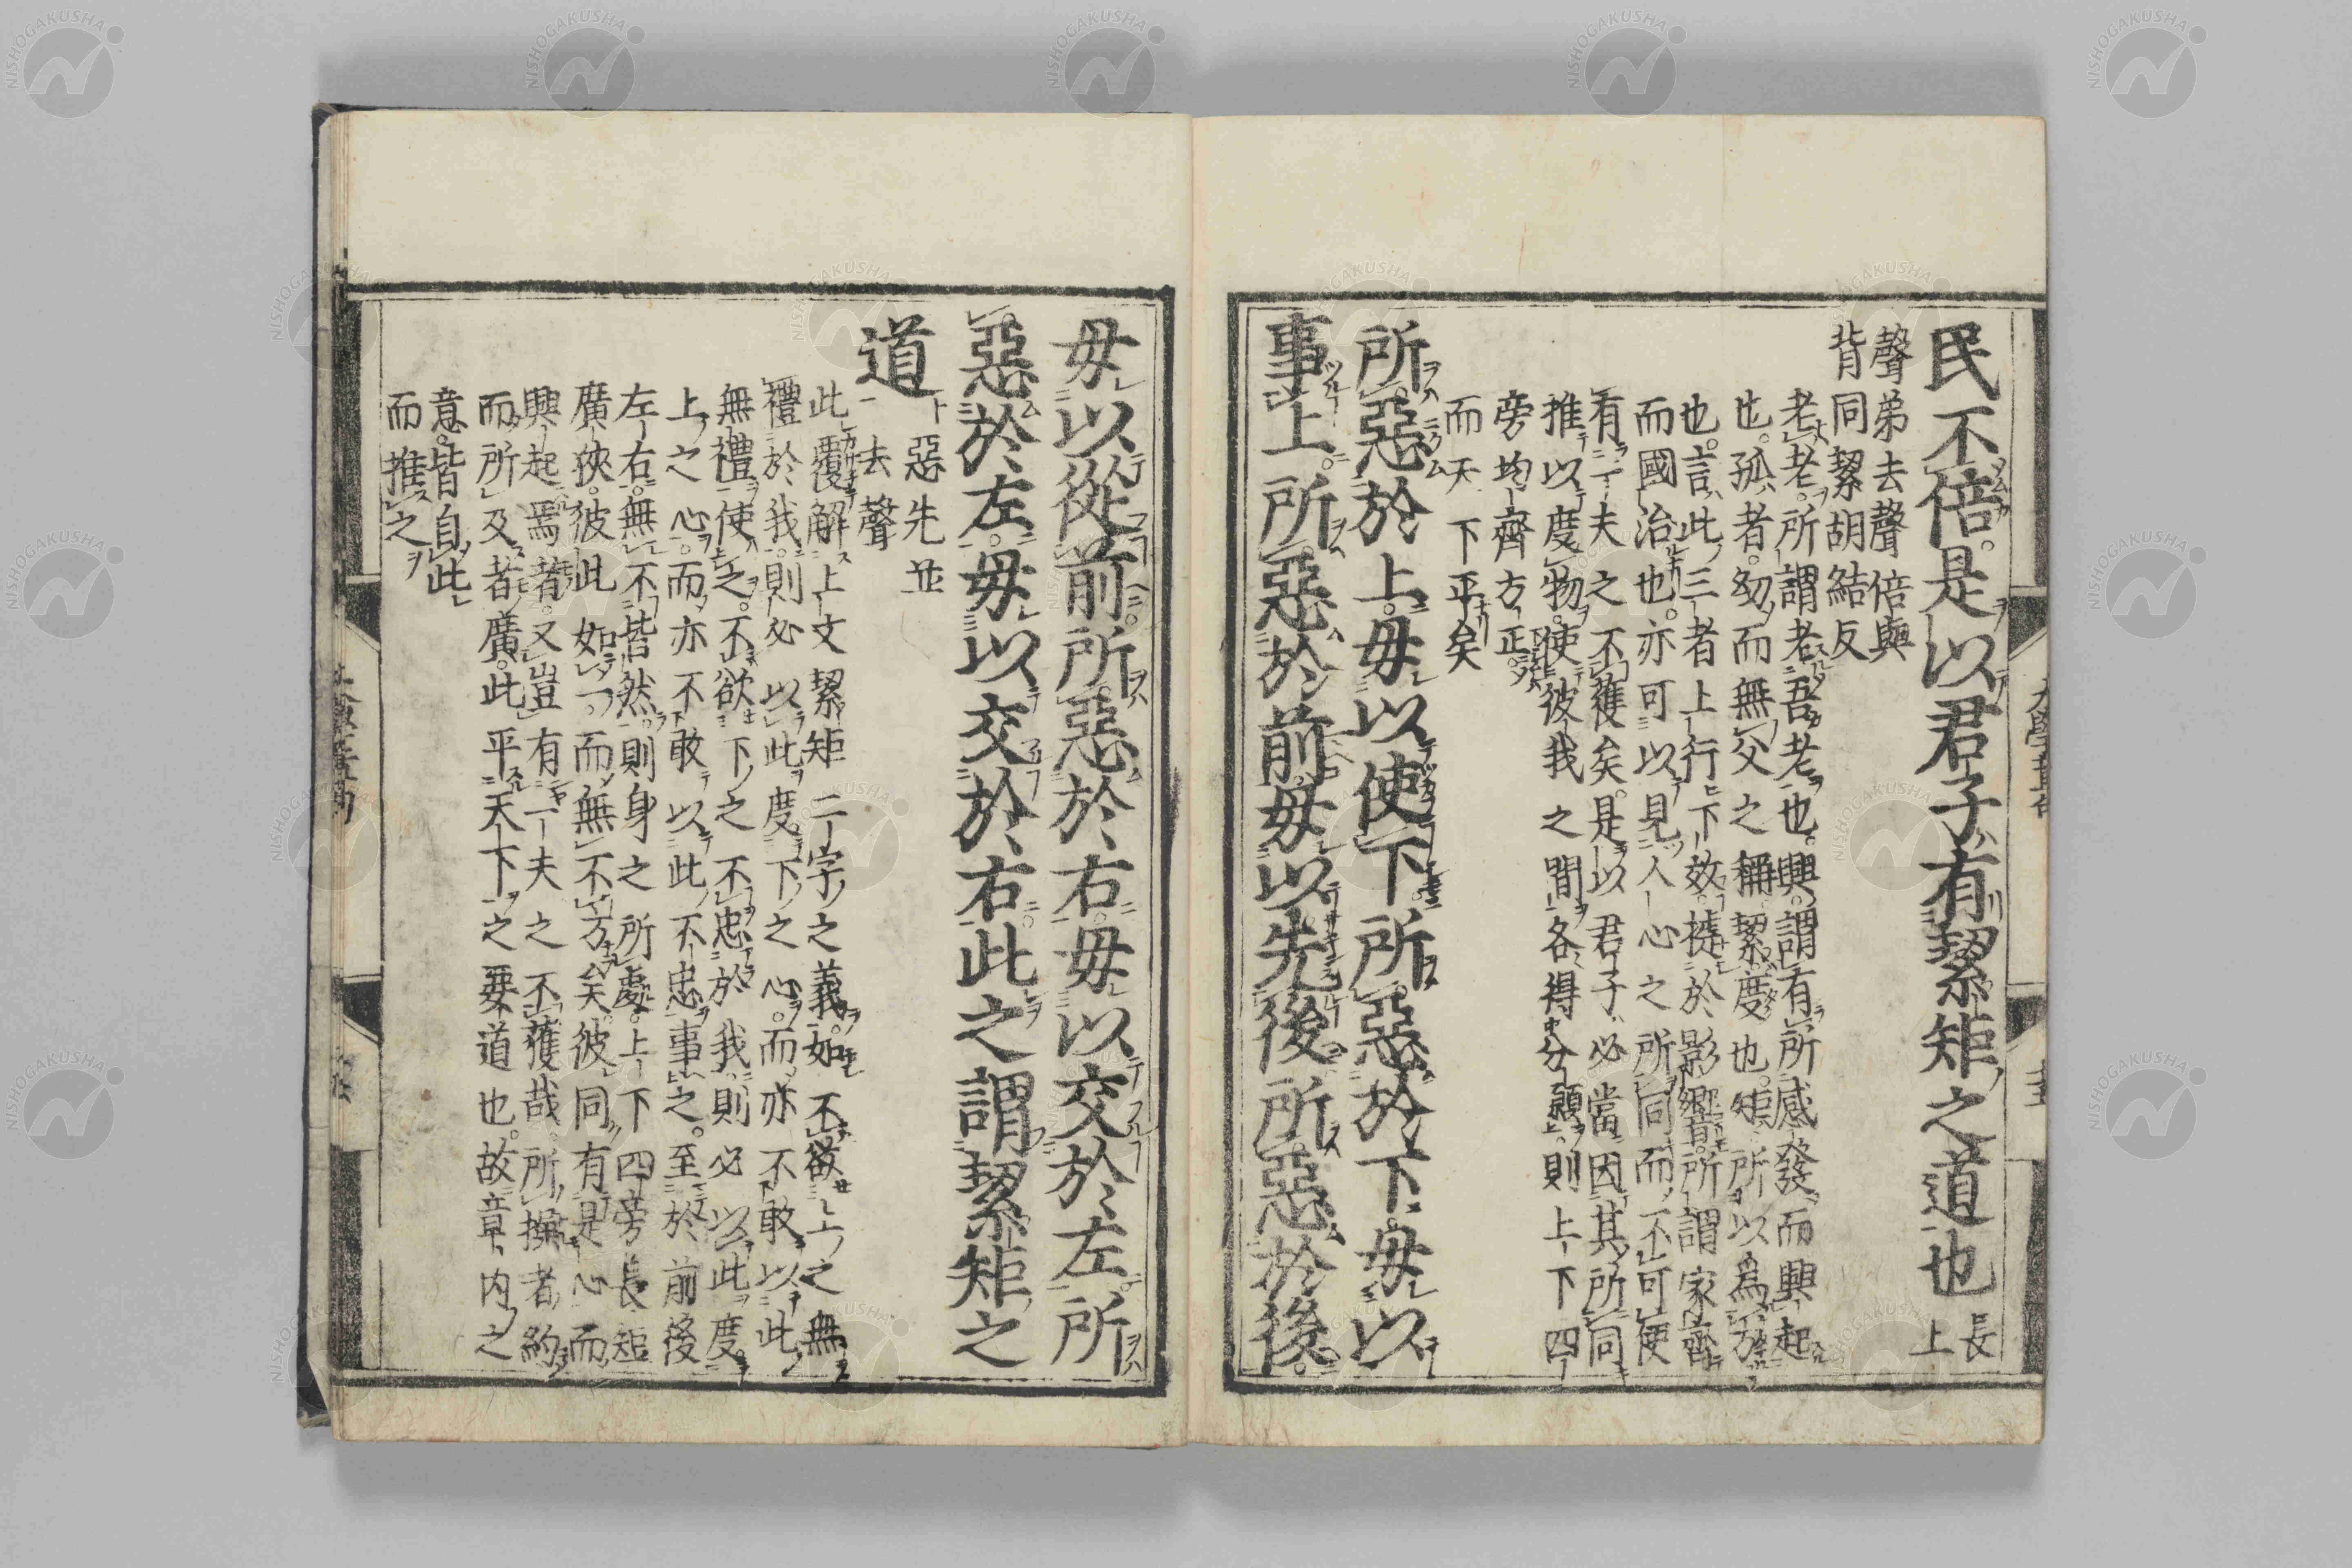 民不倍是以君子有絜矩之道也長上
聲弟去聲倍與
背同絜胡結反
老老所謂老吾老也興謂有所感發而興起
也孤者幼而無父之稱絜度也矩所以為方
也言此三者上行下效捷於影響所謂家齊
而國治也亦可以見人心之所同而不可使
有一夫之不獲矣是以君子必當因其所同
推以度物使彼我之間各得分願則上下四
旁均齊方正
而天下平矣
所惡於上毋以使下所惡於下毋以
事上所惡於前毋以先後所惡於後
毋以從前所惡於右毋以交於左所
惡於左毋以交於右此之謂絜矩之
道
惡先並
去聲
此覆解上文絜矩二字之義如不欲上之無
禮於我則必以此度下之心而亦不敢以此
無禮使之不欲下之不忠於我則必以此度
上之心而亦不敢以此不忠事之至於前後
左右無不皆然則身之所處上下四旁長短
廣狹彼此如一而無不方矣彼同有是心而
興起焉者又豈有一夫之不獲哉所操者約
而所及者廣此平天下之要道也故章內之
意皆自此
而推之
NISHOGAKUSHA